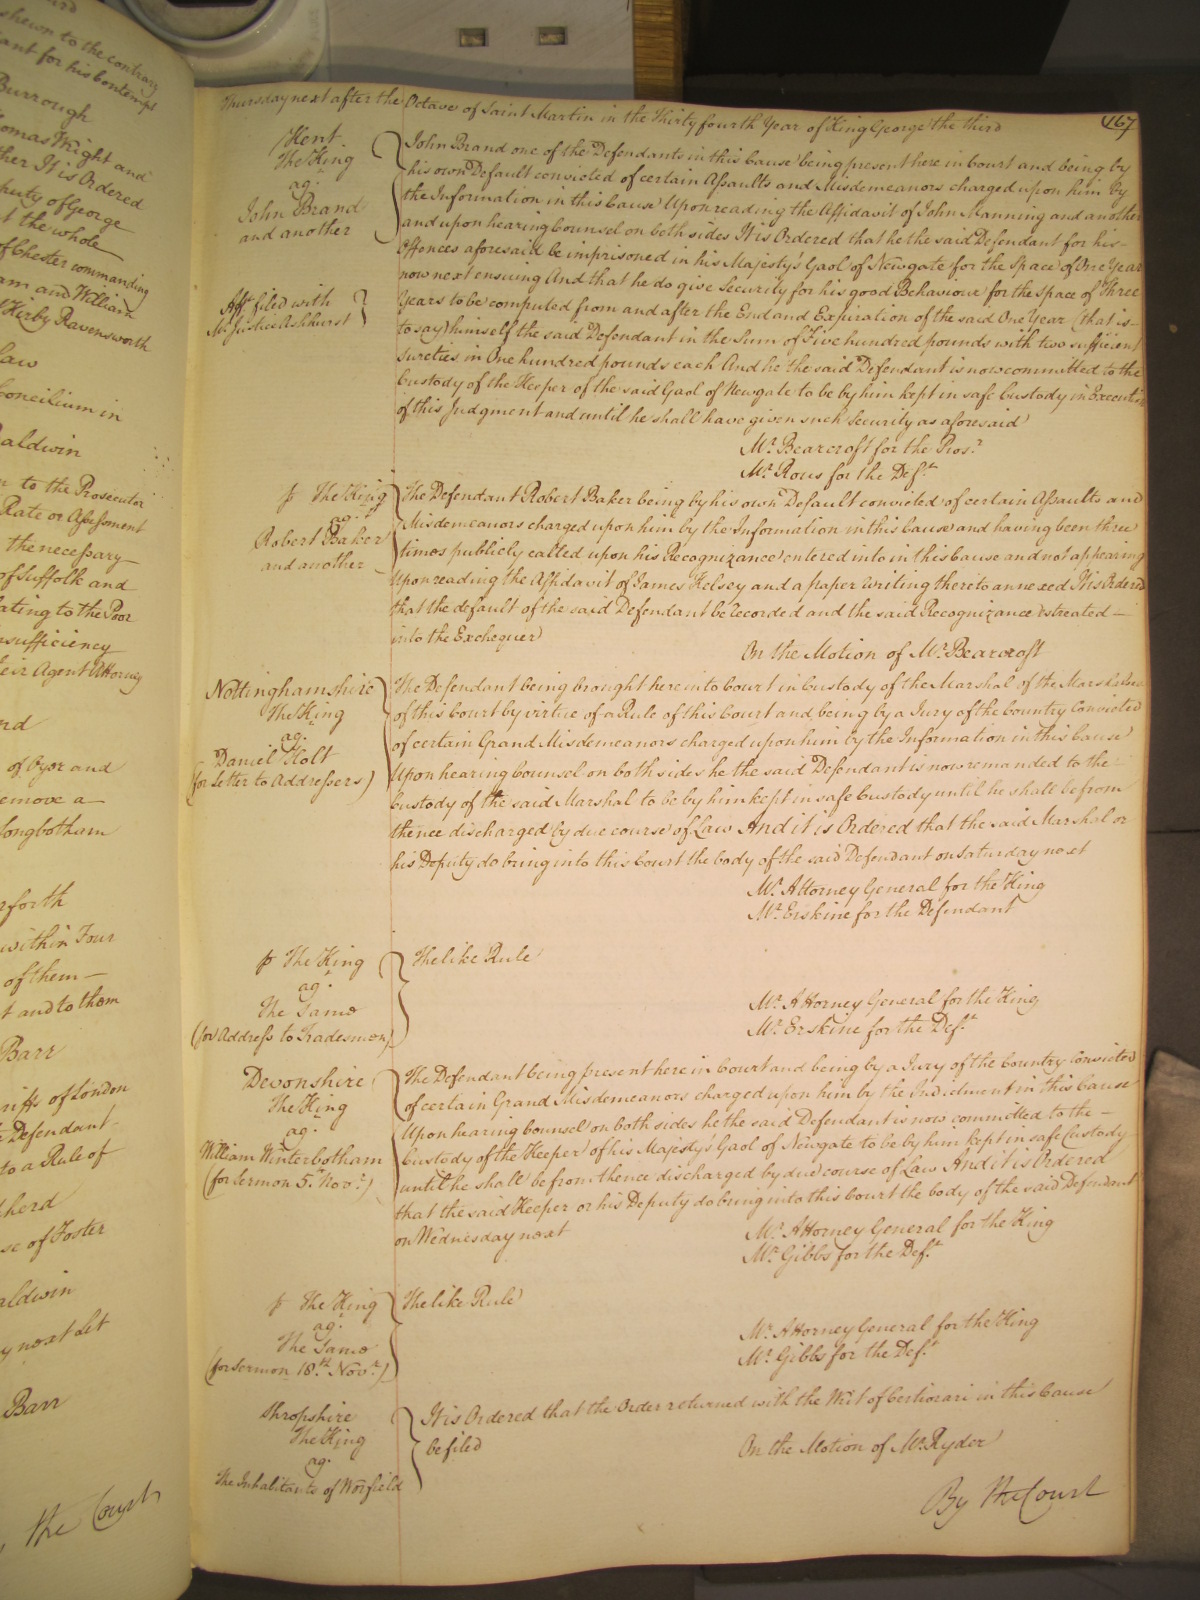 shewn to the contrary
ant for his Contempt
Burrough
Thomas Wright and
ther It is Ordered
puty of George
t the whole
of Chester commanding
am and William
Kirby Ravensworth
Law
Concilium in
Baldwin
n to the Prosecutor
Rate or Assessment
the necessary
of Suffolk and
lating to the Poor
nsufficiency
eir Agent Attorney
nd
of Oyer and
emove a
Longbotham
rforth
within Four
of them
t and to them
Barr
riffs of London
Defendant
to a Rule of
herd
se of Foster
aldwin
y next let
Barr
the Court
167
Thursday next after the Octave of Saint Martin in the Thirty fourth Year of King George the third
Kent
The King
agt
John Brand
and another
Afft filed with
Mr Justice Ashhurst
John Brand one of the Defendants in this Cause being present here in Court and being by
his own Default convicted of certain Assaults and Misdemeanors charged upon him by
the Information in this Cause Upon reading the Affidavit of John Manning and another
and upon hearing Counsel on both sides It is Ordered that he the said Defendant for his
Offences aforesaid be imprisoned in his Majesty's Gaol of Newgate for the Space of One Year
now next ensuing And that he do give Security for his good Behaviour for the Space of Three
Years to be computed from and after the End and Expiration of the said One Year (that is
to say) himself the said Defendant in the Sum of Five hundred pounds with two sufficient
sureties in One hundred pounds each And he the said Defendant is now committed to the
Custody of the Keeper of the said Gaol of Newgate to be by him kept in safe Custody in Execution
of this Judgment and until he shall have given such Security as aforesaid
Mr Bearcroft for the Prosr
Mr Rous for the Deft
The King
agt
Robert Baker
and another
The Defendant Robert Baker being by his own Default convicted of certain Assaults and
Misdemeanors charged upon him by the Information in this Cause and having been three
times publicly called upon his Recognizance entered into in this Cause and not appearing
Upon reading the Affidavit of James Kelsey and a paper writing thereto annexed It is Ordered
that the default of the said Defendant be recorded and the said Recognizance estreated
into the Exchequer
On the Motion of Mr Bearcroft
Nottinghamshire
The King
agt
Daniel Holt
(for Letter to Addressers)
The Defendant being brought here into Court in Custody of the Marshal of the Marshalsea
of this Court by virtue of a Rule of this Court and being by a Jury of the Country Convicted
of certain Grand Misdemeanors charged upon him by the Information in this Cause
Upon hearing Counsel on both sides he the said Defendant is now remanded to the
Custody of the said Marshal to be by him kept in safe Custody until he shall be from
thence discharged by due course of Law And it is Ordered that the said Marshal or
his Deputy do bring into this Court the body of the said Defendant on Saturday next
Mr Attorney General for the King
Mr Erskine for the Defendant
The King
agt
The Same
(for Address to Tradesmen)
The like Rule
Mr Attorney General for the King
Mr Erskine for the Deft
Devonshire
The King
agt
William Winterbotham
(for Sermon 5th Novr)
The Defendant being present here in Court and being by a Jury of the Country Convicted
of certain Grand Misdemeanors charged upon him by the Indictment in this Cause
Upon hearing Counsel on both sides he the said Defendant is now committed to the
Custody of the Keeper of his Majesty's Gaol of Newgate to be by him kept in safe Custody
until he shall be from thence discharged by due course of Law And it is Ordered
that the said Keeper or his Deputy do bring into this Court the body of the said Defendant
on Wednesday next
Mr Attorney General for the King
Mr Gibbs for the Deft
The King
agt
The Same
(for Sermon 18th Novr)
The like Rule
Mr Attorney General for the King
Mr Gibbs for the Deft
Shropshire
The King
agt
The Inhabitants of Worfield
It is Ordered that the Order returned with the Writ of Certiorari in this Cause
be filed
On the Motion of Mr Ryder
By the Court